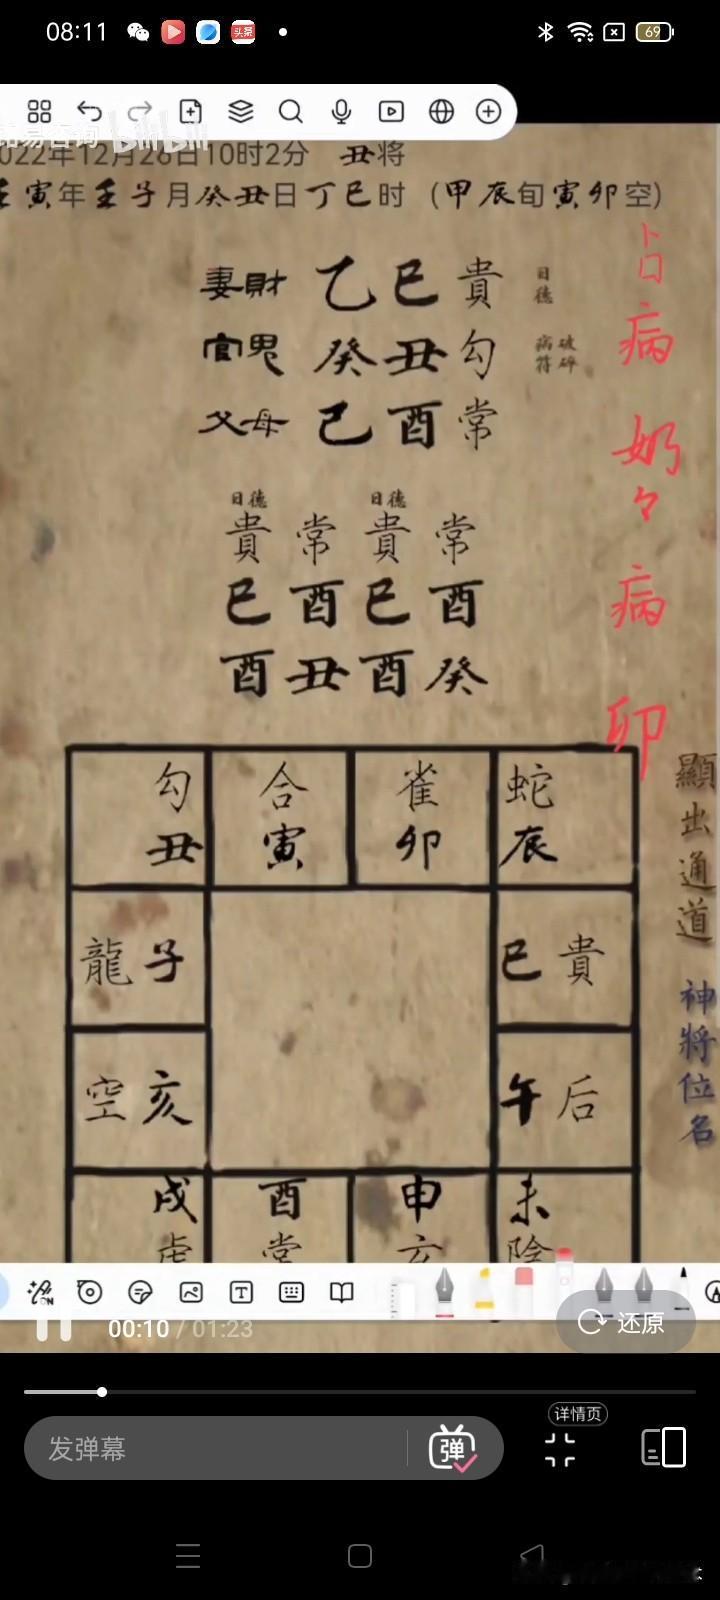 08:11 头条 69
bilibili
022年12月26日10时2分 丑将
壬寅年壬子月癸丑日丁巳时 (甲辰旬寅卯空)
妻財 乙巳貴 日德
官鬼 癸丑勾 病符 破碎
父母 己酉常
日德 日德
貴常貴常
巳酉巳酉
酉丑酉癸
占病 奶々病 卯
勾 合 雀 蛇
丑 寅 卯 辰
龍子 巳貴
空亥 午后
戌 酉 申 未
虎 常 玄 陰
顯出通道 神將位名
ON
T
00:10 / 01:23
还原
发弹幕
弹
详情页